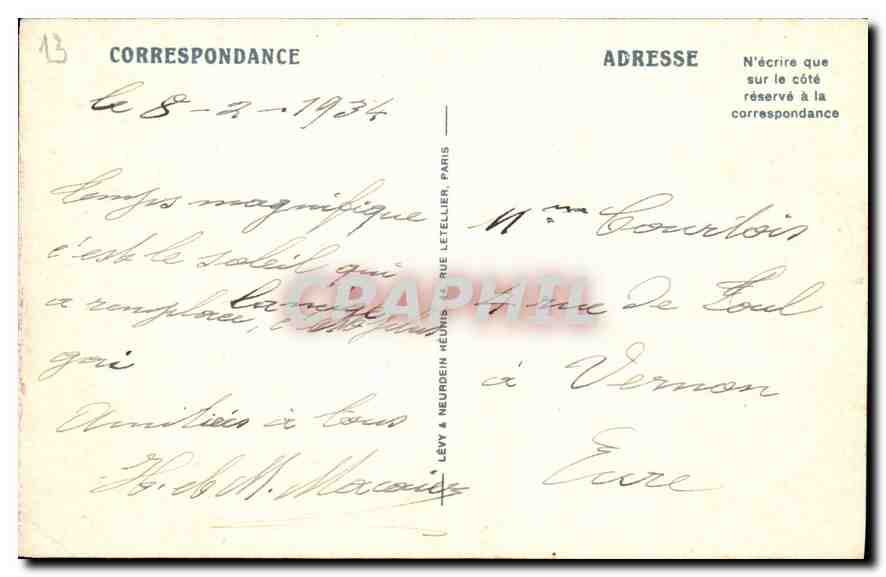 13
CORRESPONDANCE
le 8-2-1934
temps magnifique
c'est le soleil qui
a remplacé la neige, c'est plus
gai
Amitiés à tous
H. et M.
LÉVY & NEURDEIN RÉUNIS, 44, RUE LETELLIER, PARIS
ADRESSE
N'écrire que
sur le côté
réservé à la
correspondance
Mme Courtois
4 rue de Toul
à Vernon
Eure
CRAPHIL